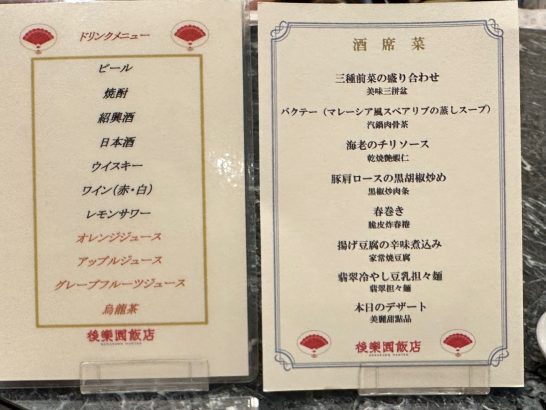 ドリンクメニュー
ビール
焼酎
紹興酒
日本酒
ウイスキー
ワイン（赤・白）
レモンサワー
オレンジジュース
アップルジュース
グレープフルーツジュース
烏龍茶
後樂園飯店
酒席菜
三種前菜の盛り合わせ
美味三拼盆
バクテー（マレーシア風スペアリブの蒸しスープ）
汽鍋肉骨茶
海老のチリソース
乾焼艶蝦仁
豚肩ロースの黒胡椒炒め
黒椒炒肉条
春巻き
脆皮炸春捲
揚げ豆腐の辛味煮込み
家常焼豆腐
翡翠冷やし豆乳担々麺
翡翠担々麺
本日のデザート
美麗甜點品
後樂園飯店
KORAKUEN HANTEN